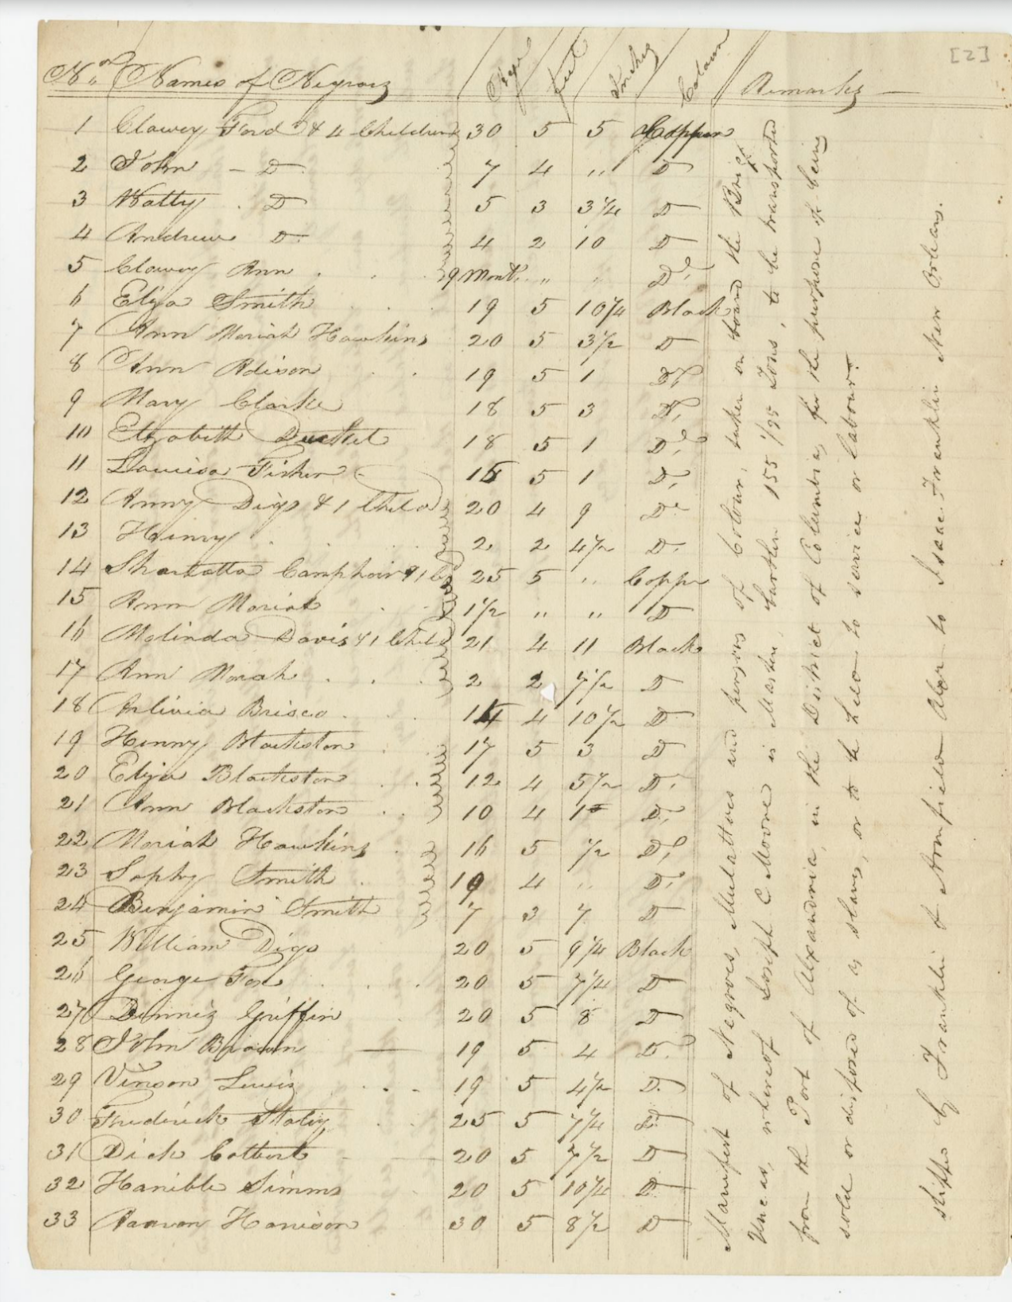 [2]
No. of Names of Negroes Age feet Inches Colour Remarks
1 Clowey Ford & 4 Children 30 5 5 Copper
2 John - Do 7 4 ,, Do
3 Watty . Do 5 3 3 1/4 Do
4 Andrew Do 4 2 10 Do
5 Clowey Ann 9 Month ,, ,, Do
6 Eliza Smith 19 5 10 1/4 Black
7 Ann Moriah Hawkins 20 5 3 1/2 Do
8 Ann Adison 19 5 1 Do
9 Mary Clarke 18 5 3 Do
10 Elizabeth Ducket 18 5 1 Do
11 Louisa Fisher 5 1 Do
12 Anny Digs & 1 Child 20 4 9 Do
13 Henry 2 2 4 1/2 Do
14 Sharlotta Camphor & 1 C 25 5 ,, Copper
15 Ann Moriah 1 1/2 ,, ,, Do
16 Malinda Davis & 1 Child 21 4 11 Black
17 Ann Moriah 2 2 7 1/2 Do
18 Brisco 14 4 10 1/2 Do
19 Henny Blackston 17 5 3 Do
20 Eliza Blackston 12 4 5 1/2 Do
21 Ann Blackston 10 4 1 Do
22 Moriah Hawkins 16 5 1/2 Do
23 Sophy Smith 19 4 ,, Do
24 Benjamin Smith 7 3 7 Do
25 William Digs 20 5 9 1/4 Black
26 George Fox 20 5 7 1/4 Do
27 Dennis Griffin 20 5 8 Do
28 John Brown 19 5 4 Do
29 Vinson Lewis 19 5 4 1/2 Do
30 Frederick 25 5 7 1/4 Do
31 Dick Colbert 20 5 7 1/2 Do
32 Hanible Simms 20 5 10 1/4 Do
33 Harrison 30 5 8 1/2 Do
Manifest of Negroes, Mulattoes and persons of Colour, taken on board the Brig
Uncas, whereof Joseph C Moore is Master, burthen 155 1/95 Tons, to be transported
from the Port of Alexandria, in the District of Columbia, for the purpose of being
sold or disposed of as slaves, or to be held to service or labour.
Shippd by Franklin & Armfield to Isaac Franklin New Orleans.